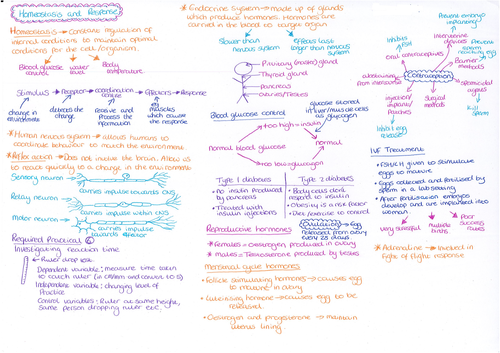 Homeostasis and Response
Homeostasis → Constant regulation of
internal conditions to maintain optimal
conditions for the cell/organism.
Blood glucose
control
water
level
Body
temperature
Stimulus → Receptor → coordination
centre → Effectors → Response
change in
environment
detects the
change
receive and
Process the
information
muscles
which cause
the response
* Human nervous system → allows humans to
coordinate behaviour to match the environment.
* Reflex action → Does not involve the brain. Allow us
to react quickly to a change in the environment.
Sensory neuron
carries impulse towards CNS
Relay neuron
carries impulse within CNS
Motor neuron
carries impulse
towards effector
Required Practical 6
Investigating reaction time
Ruler drop test
Dependent variable: measure time taken
to catch ruler (in cm/mm and convert to s)
Independent variable: changing level of
Practice
Control variables: Ruler at same height,
same person dropping ruler etc.
* Endocrine System → made up of glands
which produce hormones. Hormones are
carried in the blood to target organ.
Slower than
nervous system
Effects last
longer than nervous
system
Pituitary (master) gland
Thyroid gland
Pancreas
Ovaries/Testes
Blood glucose control
too high = insulin
glucose stored
in liver/muscle cells
as glycogen
Normal blood glucose
Normal
too low = glucagon
Type 1 diabetes
• no insulin produced
by pancreas
• Treated with
insulin injections
Type 2 diabetes
• Body cells don't
respond to insulin
• Obesity is a risk factor
• Diet/exercise to control
Reproductive hormones
Ovulation → egg
released from ovary
every 28 days
* Females = Oestrogen, produced in ovary
* males = Testosterone produced by testes
Menstrual cycle hormones
• Follicle stimulating hormone → causes egg
to mature in ovary
• Luteinising hormone → causes egg to be
released.
• Oestrogen and progesterone → maintain
uterus lining.
Contraception
Inhibits
FSH
oral contraceptives
Prevent embryo
implanting
Intrauterine
devices
Prevent
sperm
reaching egg
Barrier
methods
abstaining
from
intercourse
spermicidal
agents
Kill
sperm
injection/
implants/
Patches
Surgical
methods
Inhibit egg
release
IVF Treatment
• FSH/LH given to stimulate
eggs to mature
• Eggs collected and fertilised by
sperm in a lab setting
• After fertilisation embryos
develop and are implanted into
womb
Very stressful
multiple
births
Poor
success
rates
* Adrenaline → Involved in
fight or flight response